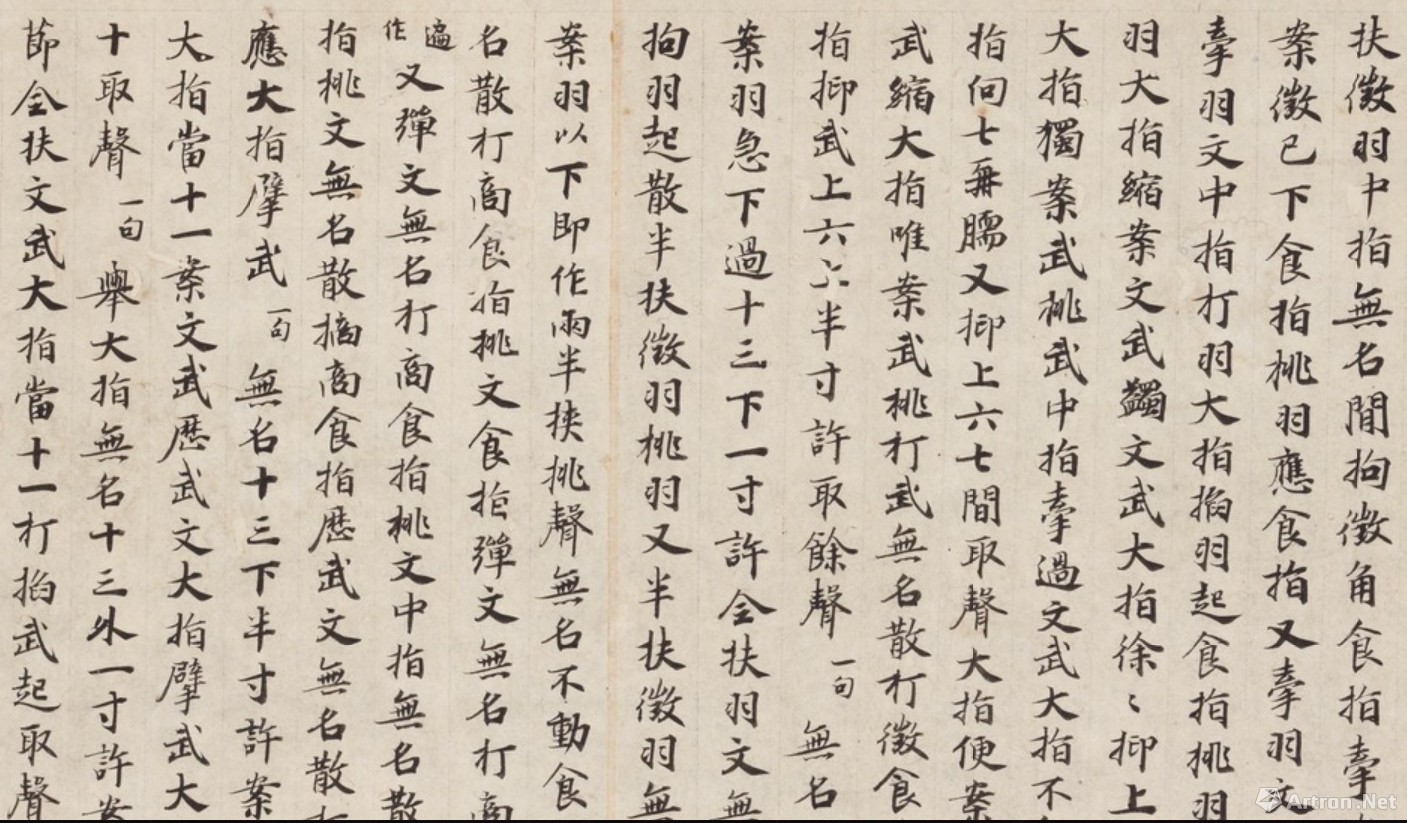 扶徵羽中指無名間拘徵角食指牽
案徵已下食指挑羽應食指又牽羽文
牽羽文中指打羽大指掐羽起食指挑羽
羽大指縮案文武蠲文武大指徐〻抑上
大指獨案武挑武中指牽過文武大指不
指伺七再臑又抑上六七間取聲大指便案
武縮大指唯案武挑打武無名散打徵食
指抑武上六六半寸許取餘聲一句無名
案羽急下過十三下一寸許全扶羽文無
拘羽起散半扶徵羽挑羽又半扶徵羽無
案羽以下即作兩半挾挑聲無名不動食
名散打商食指挑文食指彈文無名打商
遍作又彈文無名打商食指挑文中指無名散
指挑文無名散摘商食指歷武文無名散打
應大指擘武一句無名十三下半寸許案
大指當十一案文武歷武文大指擘武大
十取聲一句舉大指無名十三外一寸許案
節全扶文武大指當十一打掐武起取聲
Artron.Net